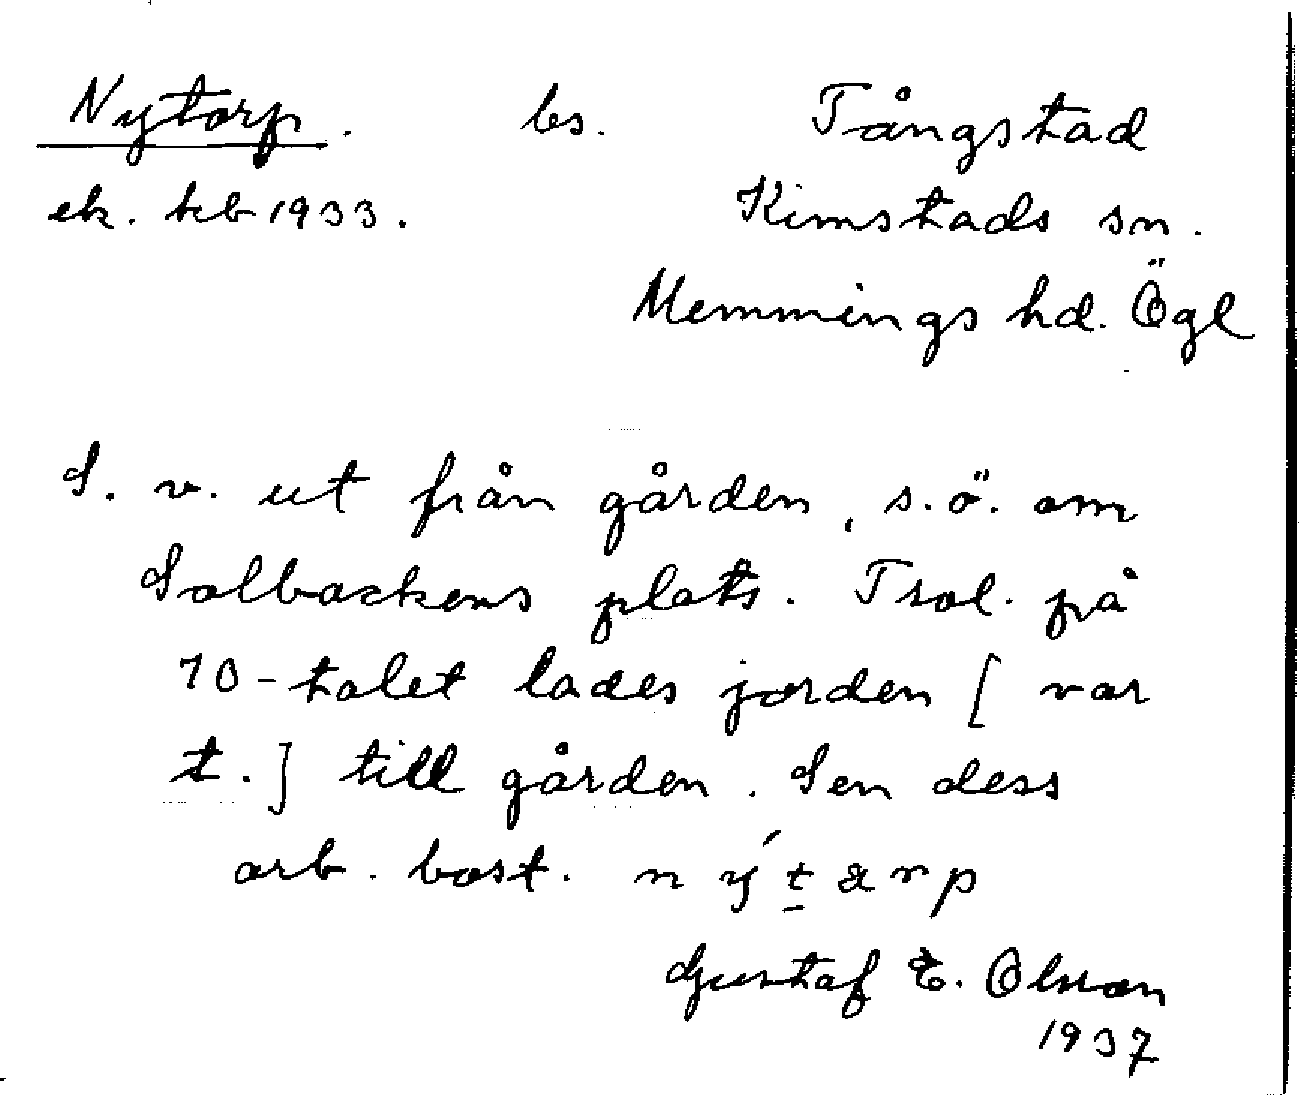 Nytorp. bs. Tångstad
ek. kb 1933. Kimstads sn.
Memmings hd. Ögl
S. v. ut från gården, s.ö. om
Solbackens plats. Trol. på
70-talet lades jorden [var
t.] till gården. Sen dess
arb. bost.
Gustaf E. Olsson
1937